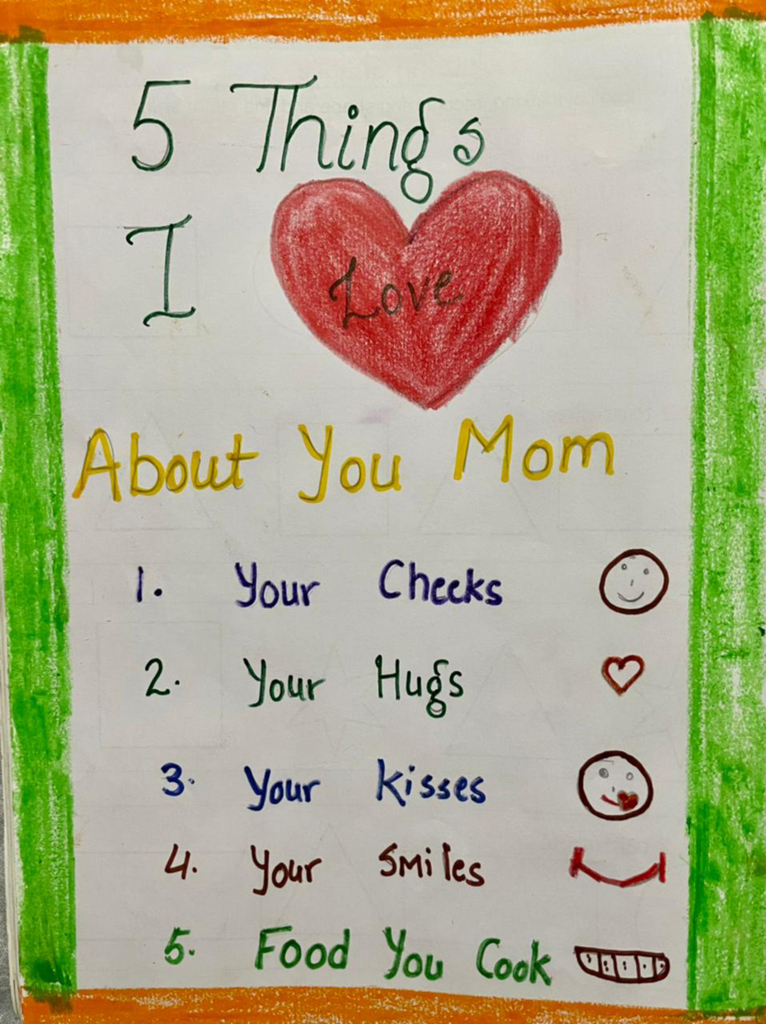 5 Things
I Love
About You Mom
1. Your Cheeks
2. Your Hugs
3. Your Kisses
4. Your Smiles
5. Food You Cook